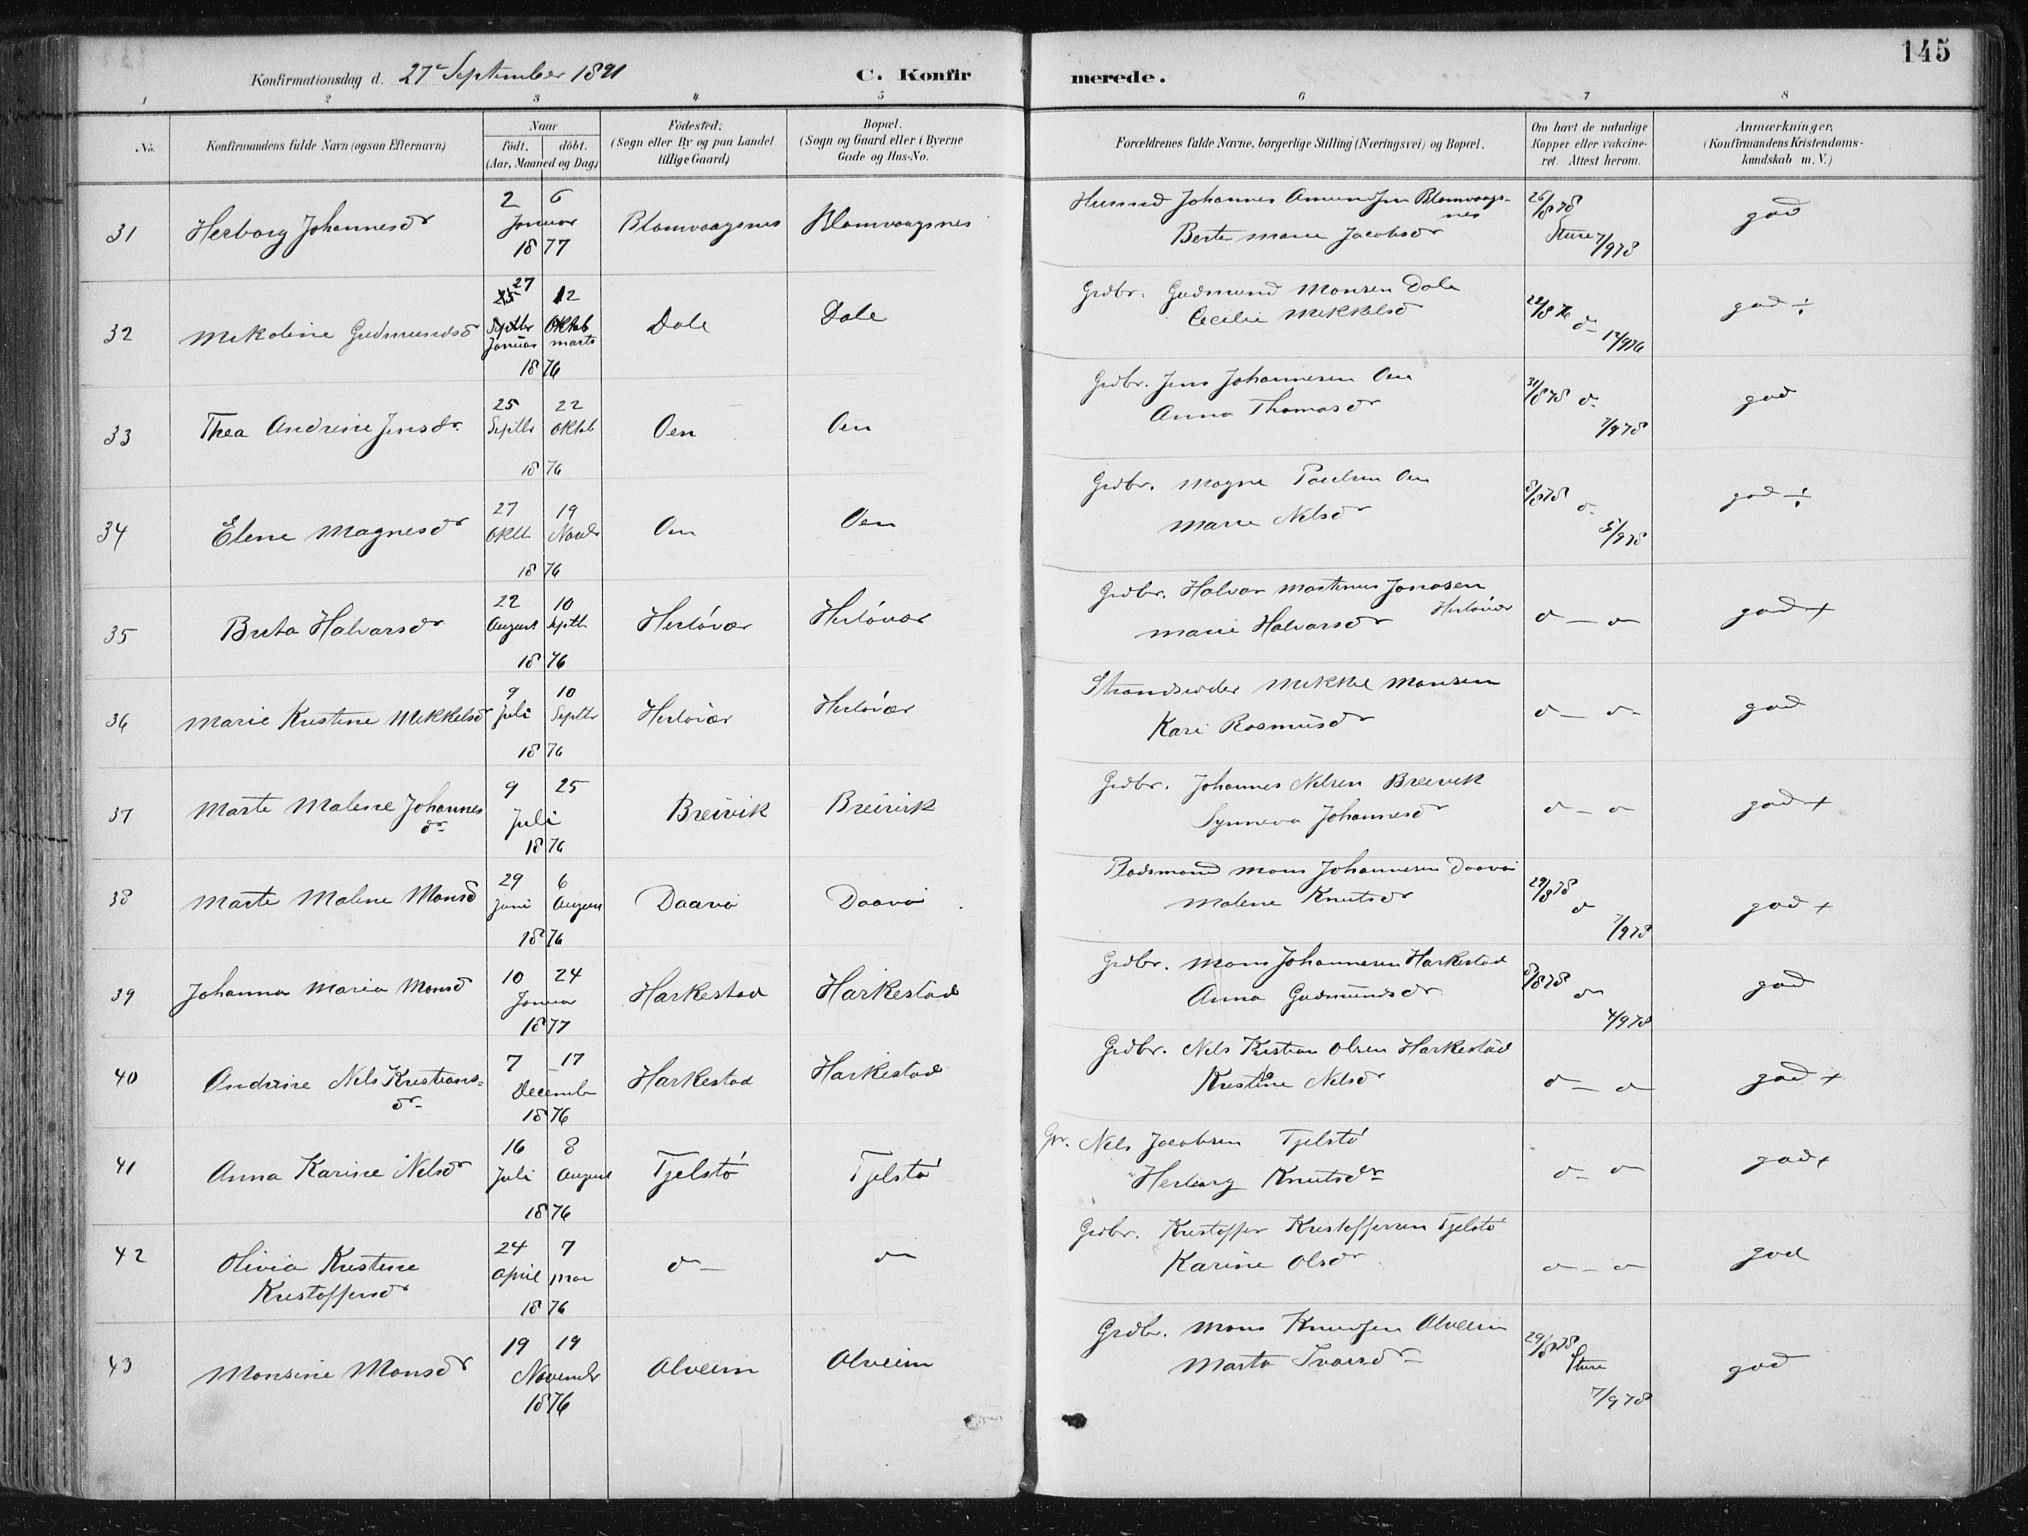 145
Konfirmationsdag d. 27de September 1891 C. Konfirmerede.
1 2 3 4 5 6 7 8
No. Konfirmandens fulde Navn (ogsaa Efternavn) Naar født. døbt. (Aar, Maaned og Dag) Fødested. (Sogn eller By og paa Landet tillige Gaard) Bopæl. (Sogn og Gaard eller i Byerne Gade og Hus-No. Forældrenes fulde Navne, borgerlige Stilling (Næringsvei) og Bopæl. Om havt de naturlige Kopper eller vakcineret. Attest herom. Anmærkninger. (Konfirmandens Kristendomskundskab m. V.)
31 Herborg Johannesdr 2 6 Januar 1877 Blomvaagsnes Blomvaagsnes Husmd Johannes Amundsen Blomvaagsnes
Berte Marie Jacobsdr 26/8 78 Sture 7/9 78 god
32 Mikoline Gudmundsd 27 12 Septbr Oktob Januar marts 1876 Dale Dale Grdbr. Gudmund Monsen Dale
Cecilie Mikkelsd 22/8 76 d 12/9 76 god ÷
33 Thea Andrine Jensdr. 25 22 Septbr Oktob 1876 Oen Oen Grdbr. Jens Johannesen Oen
Anna Thomasdr 31/8 78 d- 7/9 78 god
34 Elene Magnesdr 27 19 Oktb Novbr 1876 Oen Oen Grdbr. Magne Paulsen Oen
Marie Nelsdr 8/8 78 d- 5/9 78 god ÷
35 Breta Halvarsdr 22 10 August Septbr 1876 Herløvær Herløvær Grdbr. Halvor Martinus Jonasen Herløvær
Marie Halvarsdr d - d god +
36 Marie Kristine Mikkelsdr 9 10 Juli Septbr 1876 Herløvær Herløvær Strandsidder Mikkel Monsen
Kari Rasmusdr d - d- god
37 Marte Malene Johannesdr 9 25 Juli 1876 Breivik Breivik Grdbr. Johannes Nelsen Breivik
Synneva Johannesdr d - d god +
38 Marte Malene Monsd 29 6 Juni August 1876 Daavø Daavø Pladsmand Mons Johannesen Daavø
Malene Knutsdr 29/8 78 d 7/9 78 god +
39 Johanna Maria Monsd 10 24 Januar 1877 Harkestad Harkestad Grdbr. Mons Johannesen Harkestad
Anna Gudmundsdr 8/8 78 d 4/9 78 god
40 Andrine Nels Kristiansdr 7 17 December 1876 Harkestad Harkestad Grdbr. Nels Kristian Olsen Harkestad
Kristine Nelsdr d - d god +
41 Anna Karine Nelsdr 16 8 Juli August 1876 Tjelstø Tjelstø Gr. Nels Jacobsen Tjelstø
Herborg Knutsdr d- d god +
42 Olivia Kristine Kristoffersdr 24 7 April Mai 1876 d- d- Grdbr. Kristoffer Kristoffersen Tjelstø
Karine Olsdr d - d god
43 Monsine Monsdr 19 19 November 1876 Alveim Alveim Grdbr. Mons Knudsen Alveim
Marta Ivarsdr 29/8 78 Sture 7/9 78 god